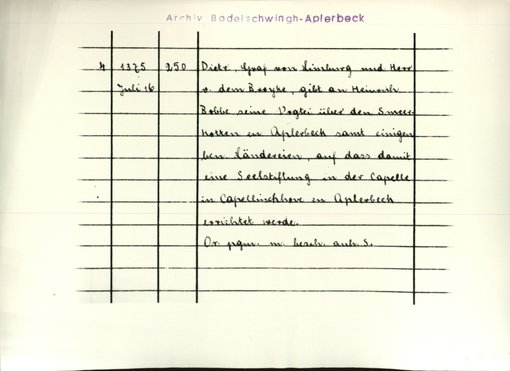 Archiv Bodelschwingh-Aplerbeck
4 1375 250 Dietr, Graf von Limburg und Herr
Juli 16 v. dem Broyke, gibt an Heinrich
Bobbe seine Vogtei über den Smeer-
kotten in Aplerbeck samt einigen
ben Ländereien, auf dass damit
eine Seelstiftung in der Capelle
in Capellinckhove in Aplerbeck
errichtet werde.
Or. pgm. m. besch. anh. S.